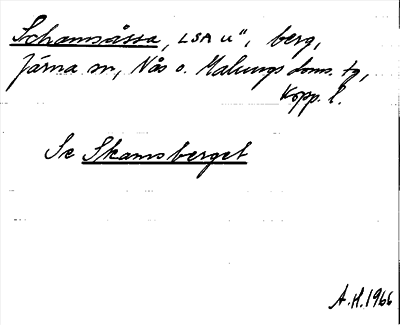 Schamsåssa, LSA U", berg,
Järna sn, Nås o. Malungs doms. tg,
Kopp. l.
Se Skamsberget
A.H. 1966